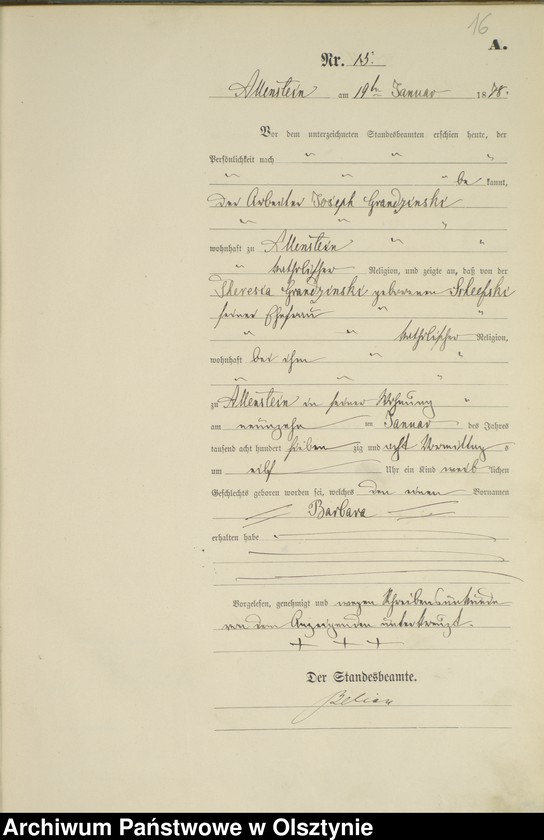 16
A.
Nr. 15.
Allenstein am 19ten Januar 1878.
Vor dem unterzeichneten Standesbeamten erschien heute, der
Persönlichkeit nach
be kannt,
der Arbeiter Joseph Grandzinski
wohnhaft zu Allenstein
katholischer Religion, und zeigte an, daß von der
Theresia Grandzinski geborenen
seiner Ehefrau
katholischer Religion,
wohnhaft bei ihm
zu Allenstein in seiner Wohnung
am neunzehn ten Januar des Jahres
tausend acht hundert sieben zig und acht Vormittag s
um eilf Uhr ein Kind weib lichen
Geschlechts geboren worden sei, welches den einen Vornamen
Barbara
erhalten habe
Vorgelesen, genehmigt und wegen Schreibensunkunde
von dem Anzeigenden unterkreuzt.
+ + +
Der Standesbeamte.
Archiwum Państwowe w Olsztynie